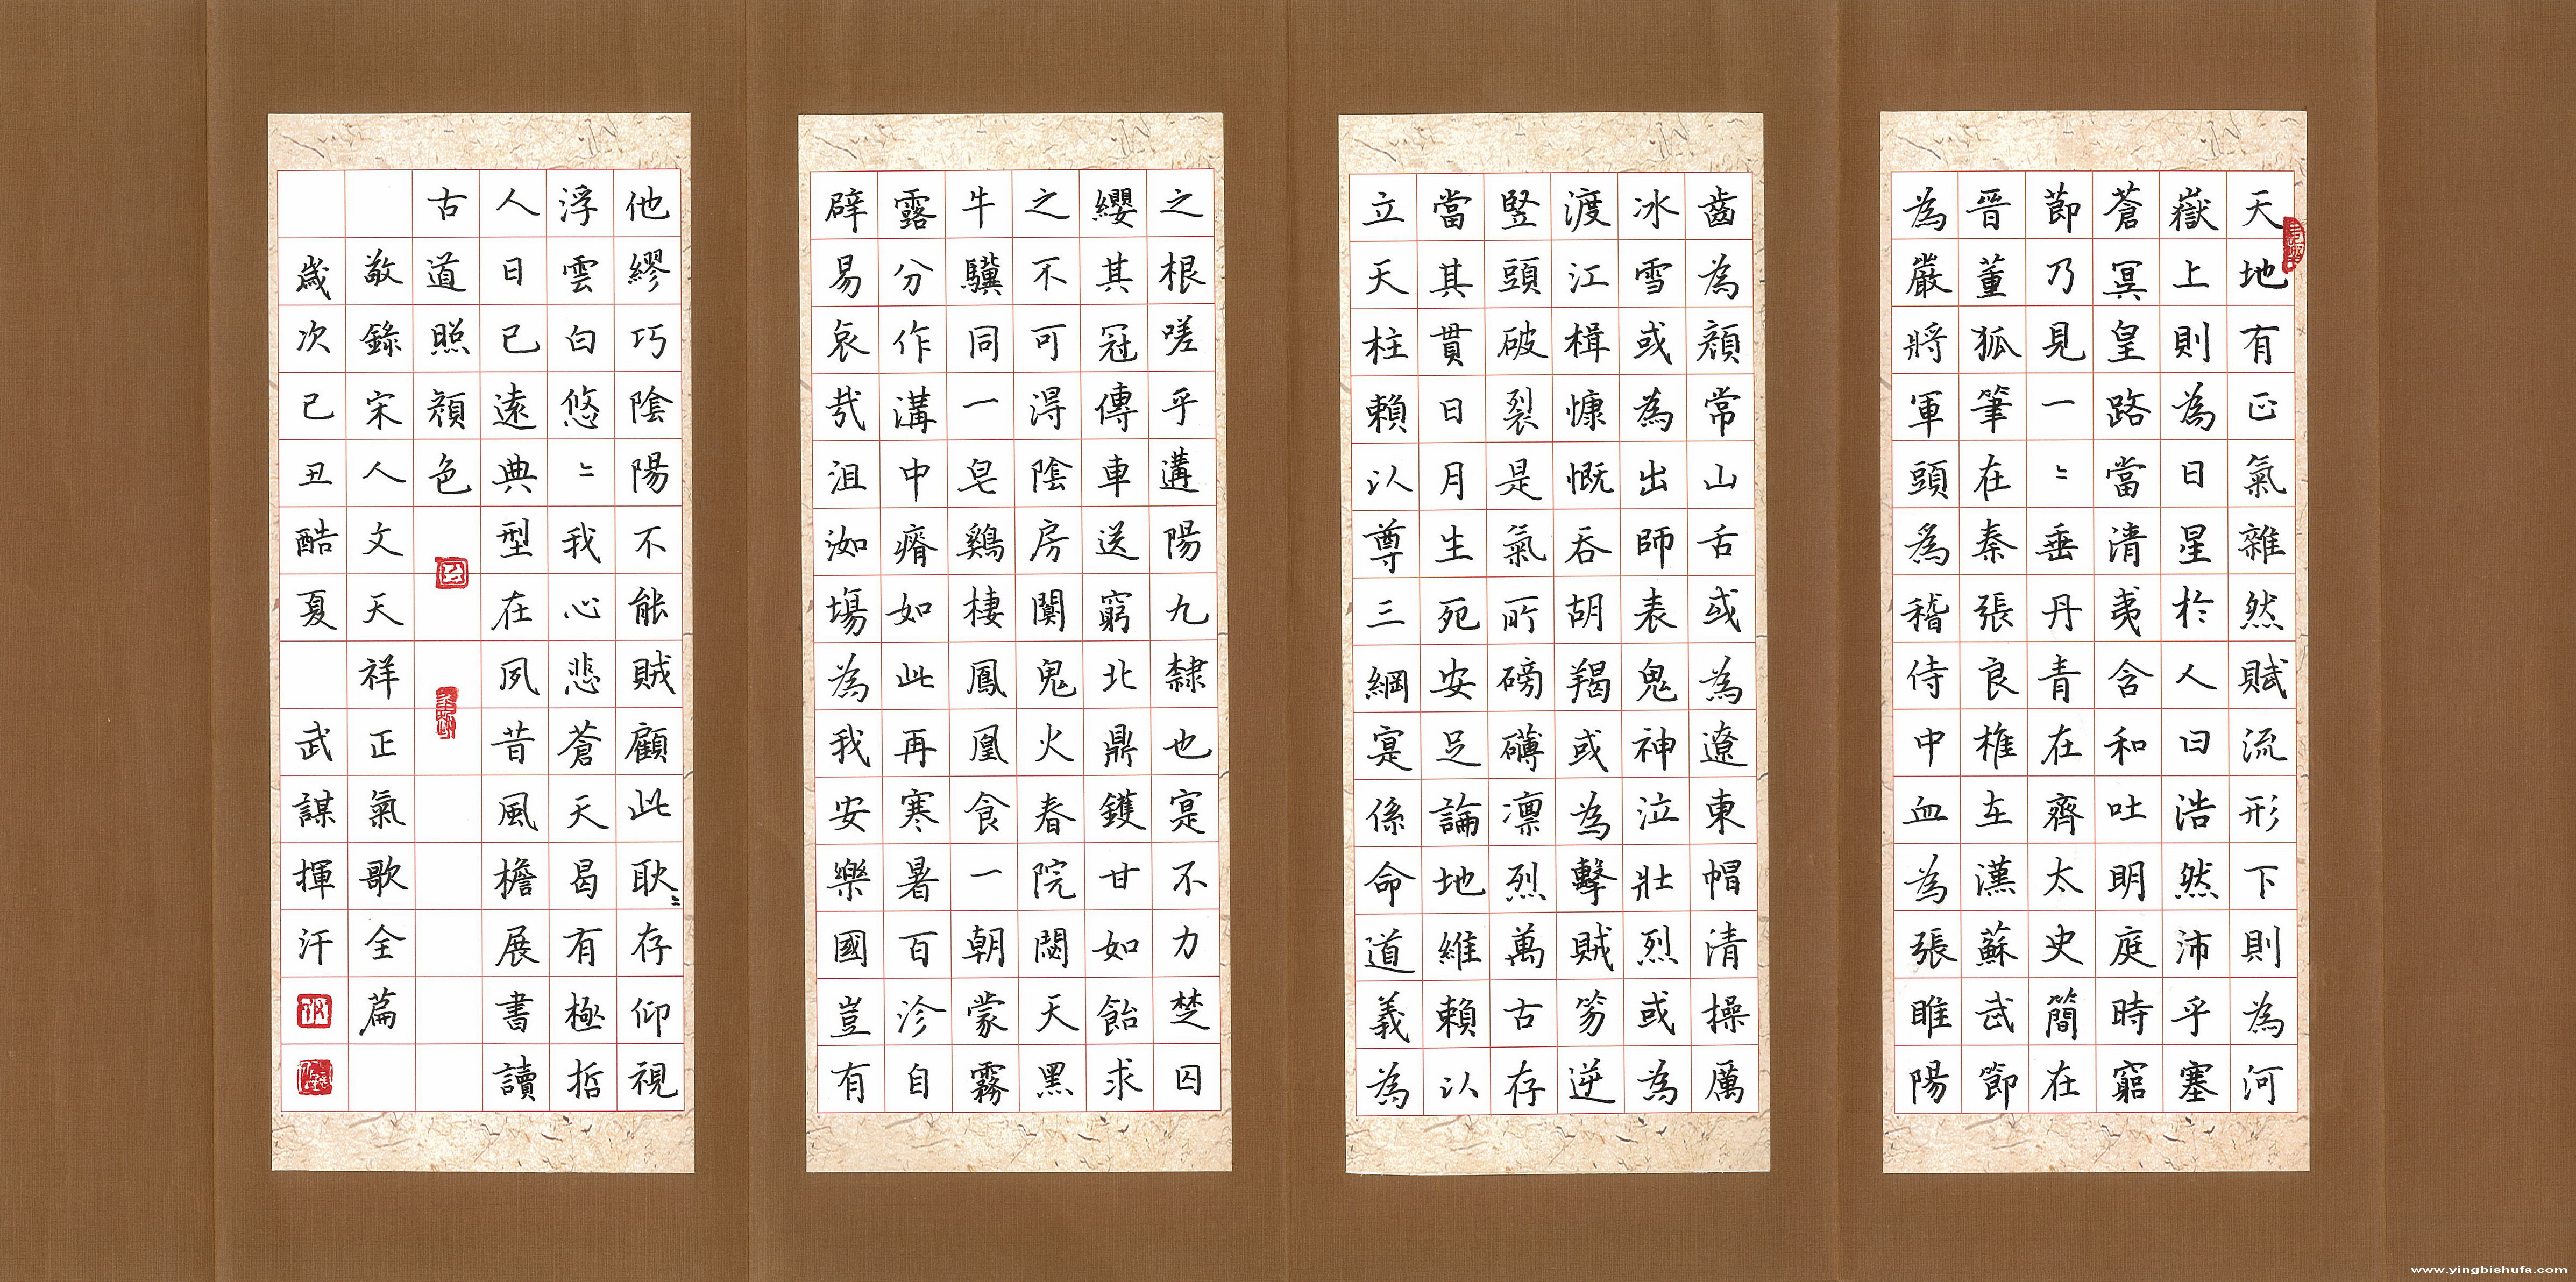 天地有正氣雜然賦流形下則為河
嶽上則為日星於人曰浩然沛乎塞
蒼冥皇路當清夷含和吐明庭時窮
節乃見一〻垂丹青在齊太史簡在
晉董狐筆在秦張良椎在漢蘇武節
為嚴將軍頭為稽侍中血為張睢陽
齒為顏常山舌或為遼東帽清操厲
冰雪或為出師表鬼神泣壯烈或為
渡江楫慷慨吞胡羯或為擊賊笏逆
豎頭破裂是氣所磅礴凛烈萬古存
當其貫日月生死安足論地維賴以
立天柱賴以尊三綱寔係命道義為
之根嗟乎遘陽九隸也寔不力楚囚
纓其冠傳車送窮北鼎鑊甘如飴求
之不可得陰房闃鬼火春院閟天黑
牛驥同一皂鷄棲鳳凰食一朝蒙霧
露分作溝中瘠如此再寒暑百沴自
辟易哀哉沮洳場為我安樂國豈有
他繆巧陰陽不能賊顧此耿〻存仰視
浮雲白悠〻我心悲蒼天曷有極哲
人日已遠典型在夙昔風檐展書讀
古道照顏色
敬錄宋人文天祥正氣歌全篇
歲次己丑酷夏 武謀揮汗
www.yingbishufa.com